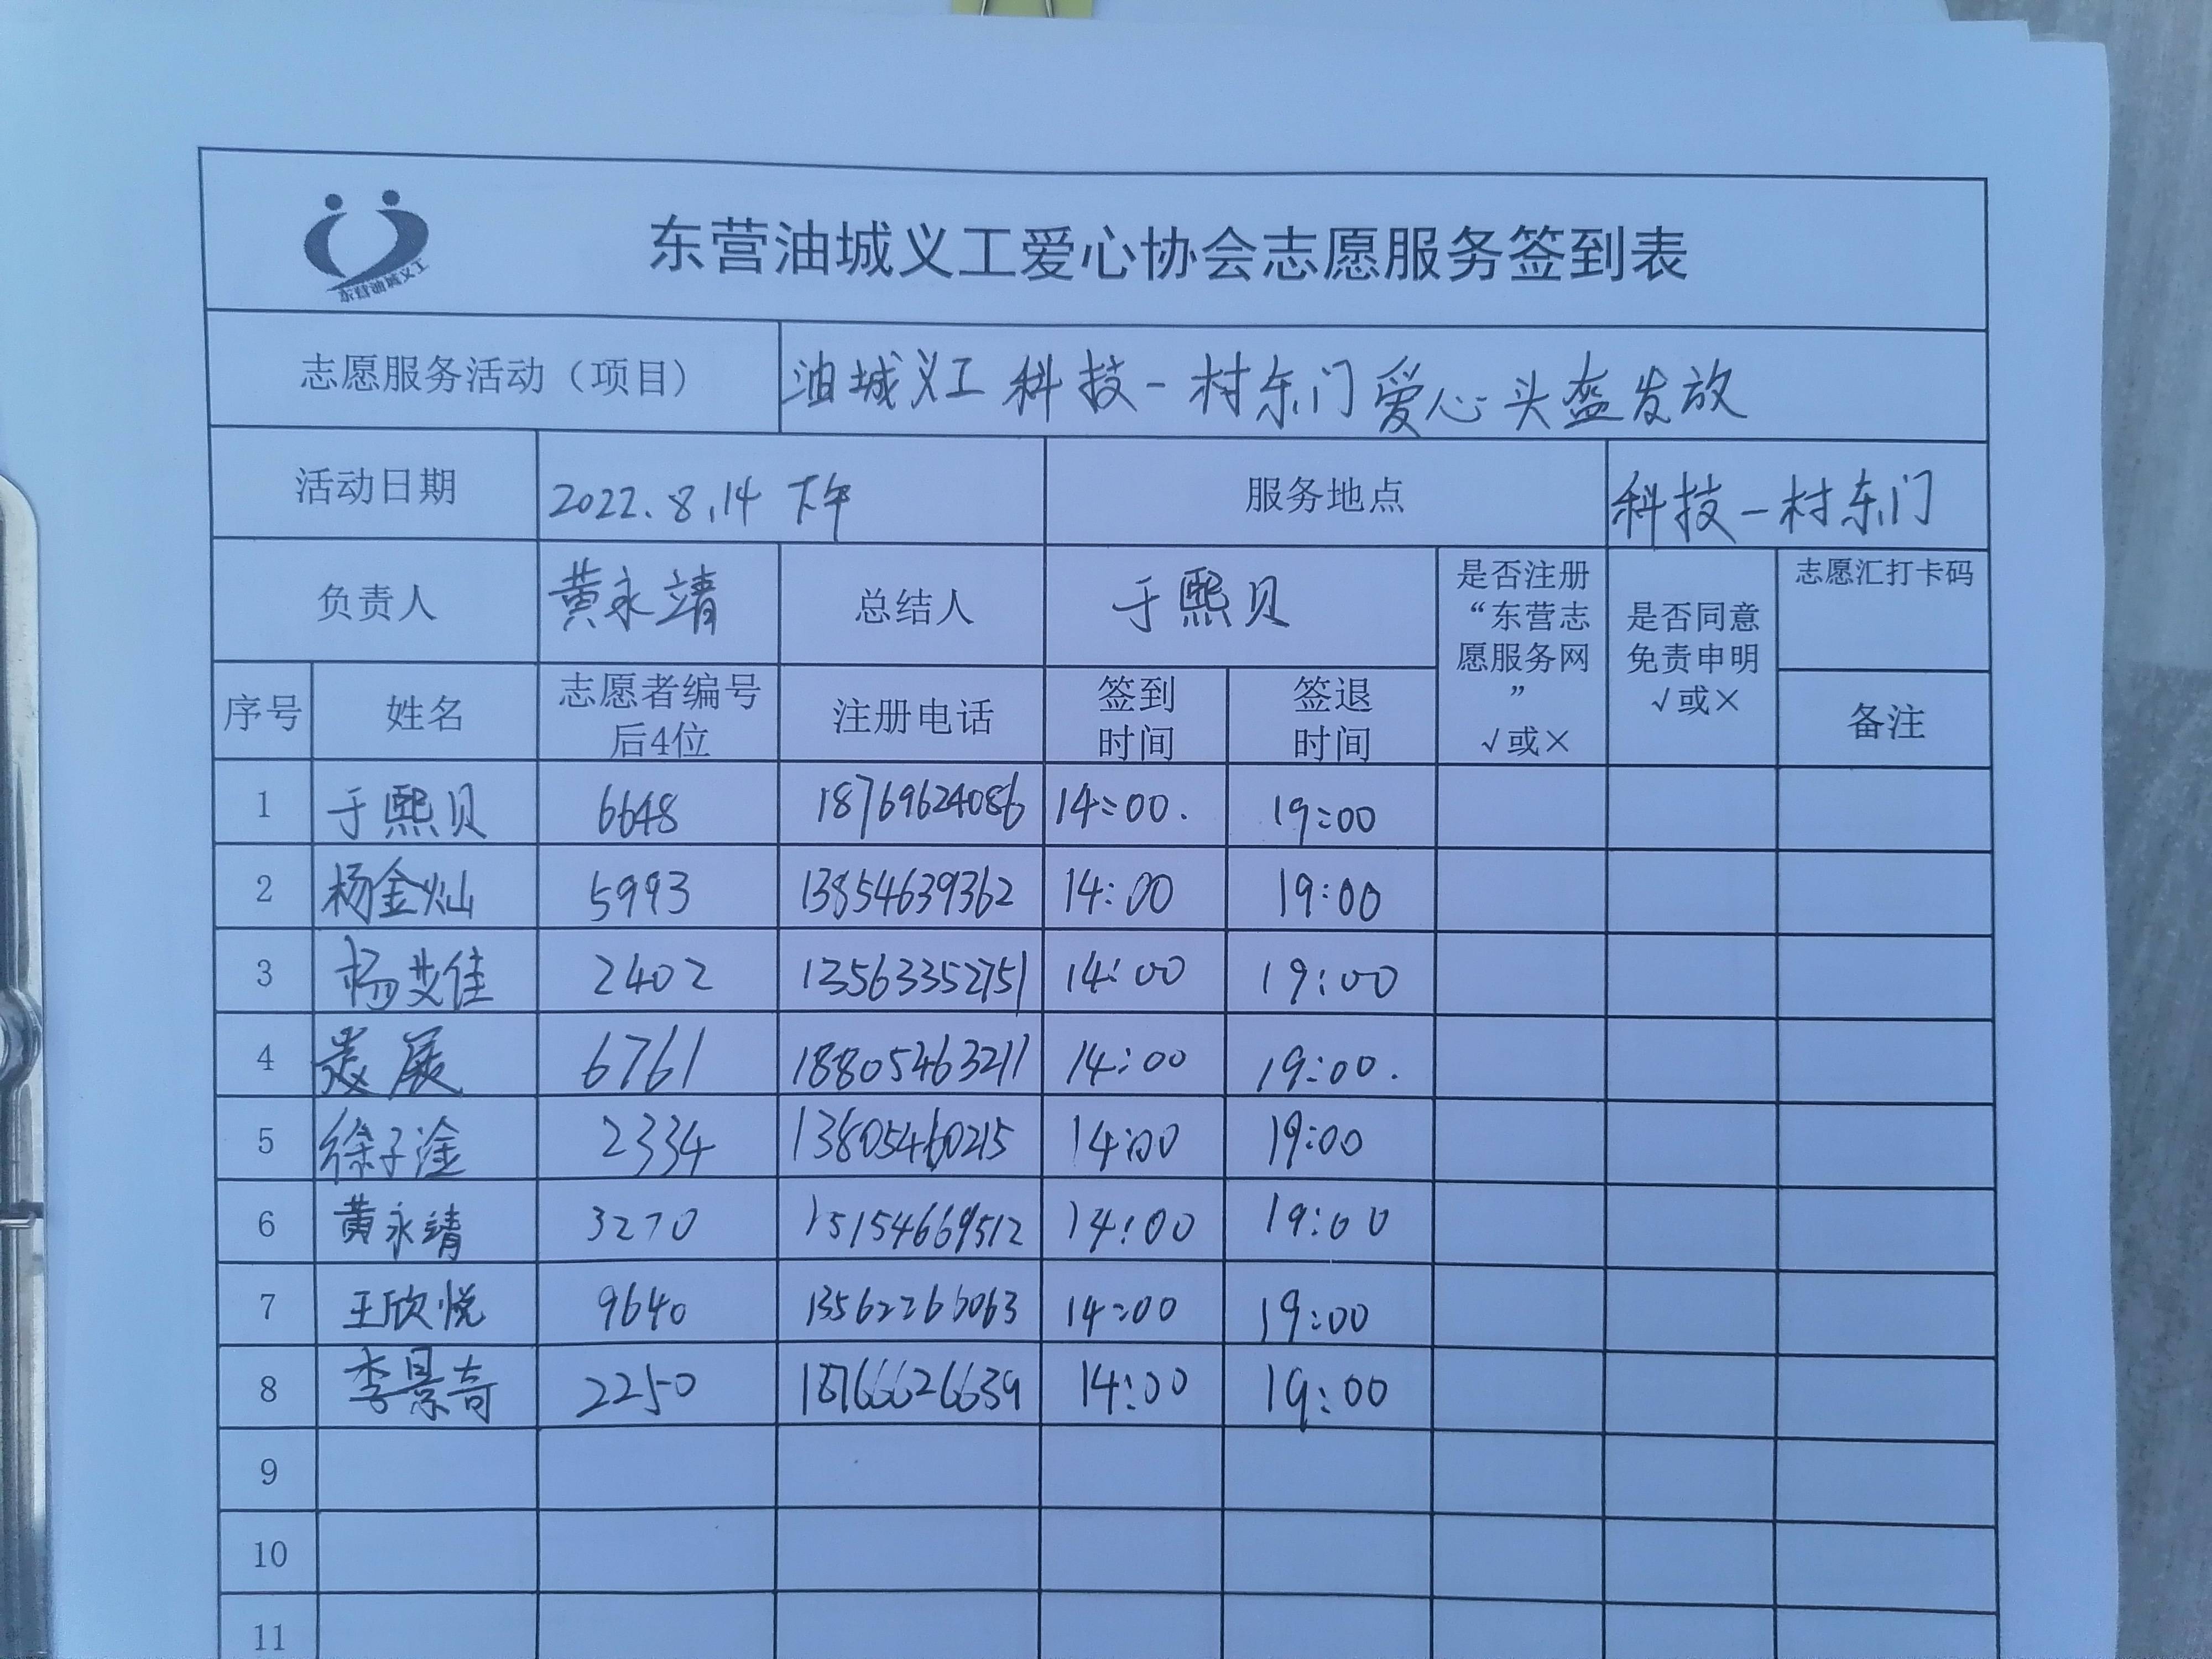 东营油城义工
东营油城义工爱心协会志愿服务签到表
志愿服务活动（项目） 油城义工科技一村东门爱心头盔发放
活动日期 2022.8.14 下午 服务地点 科技一村东门
负责人 黄永靖 总结人 于熙贝 是否注册“东营志愿服务网” √或× 是否同意免责申明 √或× 志愿汇打卡码
序号 姓名 志愿者编号后4位 注册电话 签到时间 签退时间 备注
1 于熙贝 6648 18769624086 14:00. 19:00
2 杨金灿 5993 13854639362 14:00 19:00
3 杨艾佳 2402 13563352751 14:00 19:00
4 展 6761 18805463211 14:00 19:00.
5 徐子淦 2334 13805460215 14:00 19:00
6 黄永靖 3270 15154669512 14:00 19:00
7 王欣悦 9640 13562266063 14:00 19:00
8 李景奇 2250 18766626639 14:00 19:00
9
10
11